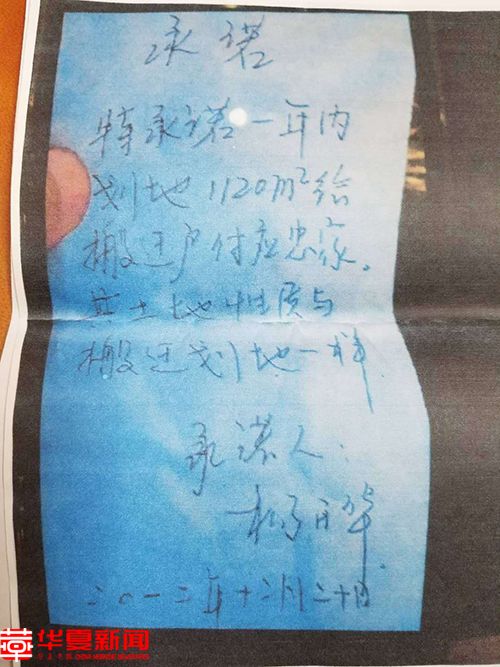 承诺
特承诺一年内
划地1120m²给
搬迁户付应忠家。
其土地性质与
搬迁划地一样
承诺人:
华
二〇一二年十二月二十日
华夏新闻